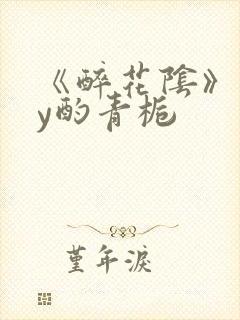 《醉花陰》
y酌青梔
堇年淚